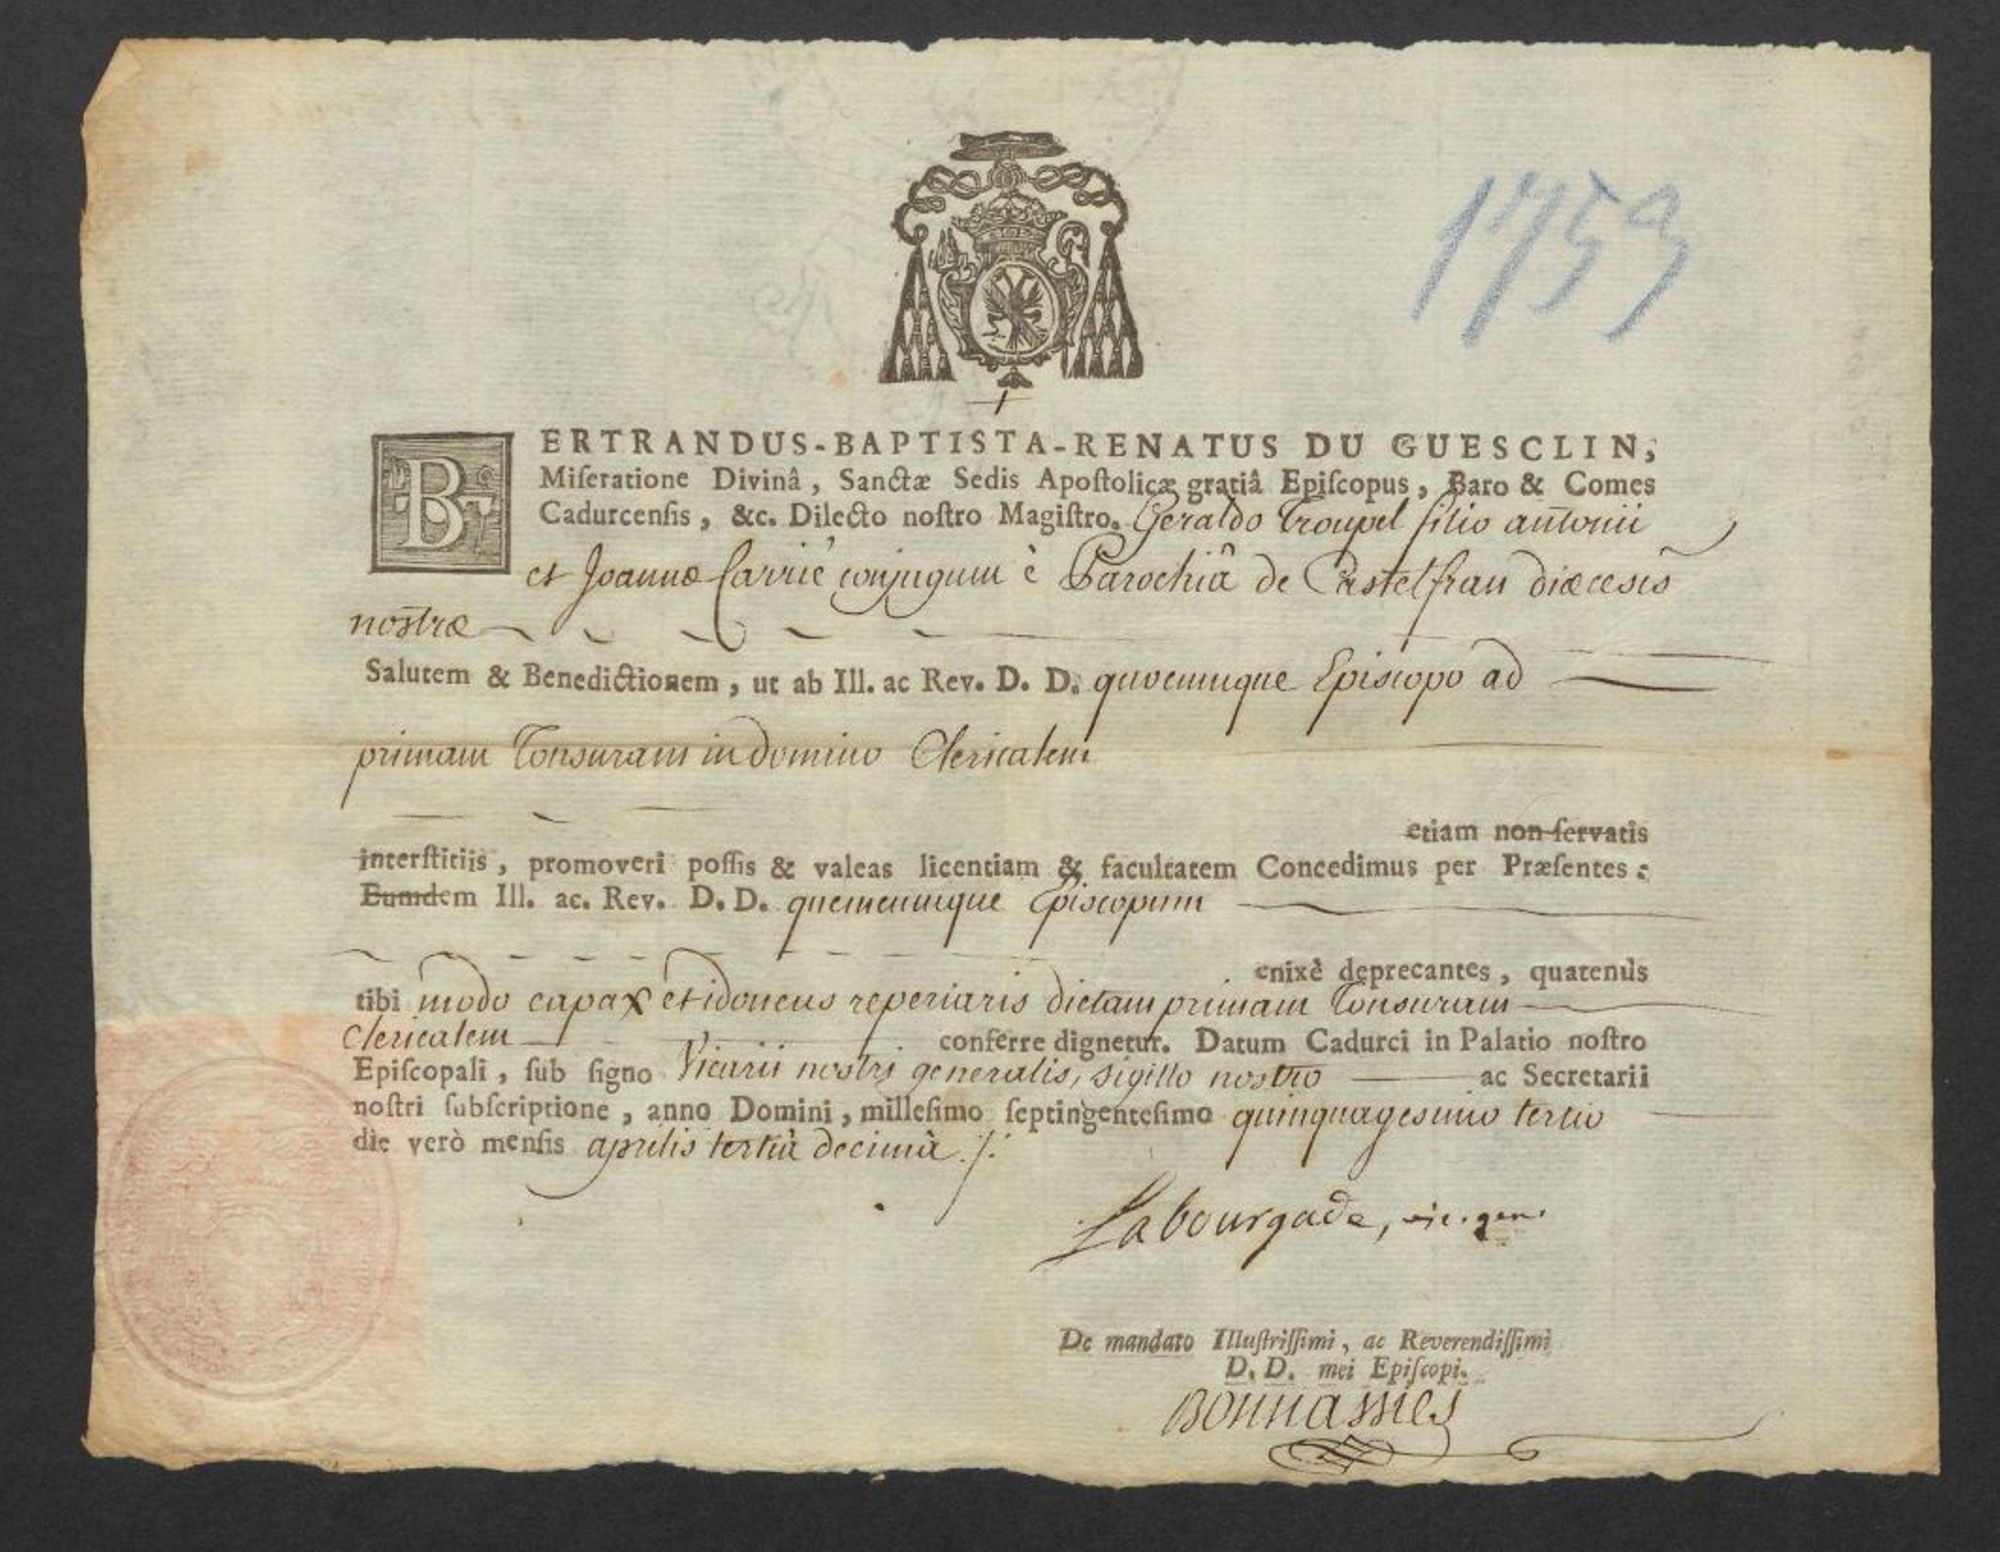 1753
BERTRANDUS-BAPTISTA-RENATUS DU GUESCLIN,
Miſeratione Divinâ, Sanctæ Sedis Apoſtolicæ gratiâ Epiſcopus, Baro & Comes
Cadurcenſis, &c. Dilecto noſtro Magiſtro. Geraldo Troupel filio antonii
et Joannæ Carrié conjugum è Parochiâ de Castelfran diæcesis
nostræ
Salutem & Benedictionem, ut ab Ill. ac Rev. D. D. quocumque Episcopo ad
primam Tonsuram in domino Clericalem
etiam non ſervatis
interſtitiis, promoveri poſſis & valeas licentiam & facultatem Concedimus per Præſentes:
Eumdem Ill. ac. Rev. D. D. quemcumque Episcopum
enixè deprecantes, quatenùs
tibi modo capax et idoneus reperiaris dictam primam Tonsuram
Clericalem conferre dignetur. Datum Cadurci in Palatio noſtro
Epiſcopali, ſub ſigno Vicarii nostri generalis, sigillo nostro ac Secretarii
noſtri ſubſcriptione, anno Domini, milleſimo ſeptingenteſimo quinquagesimo tertio
die verò menſis aprilis tertiâ decimâ ./.
Labourgade, vic. gen.
De mandato Illuſtriſſimi, ac Reverendiſſimi
D. D. mei Epiſcopi.
Bonnassies